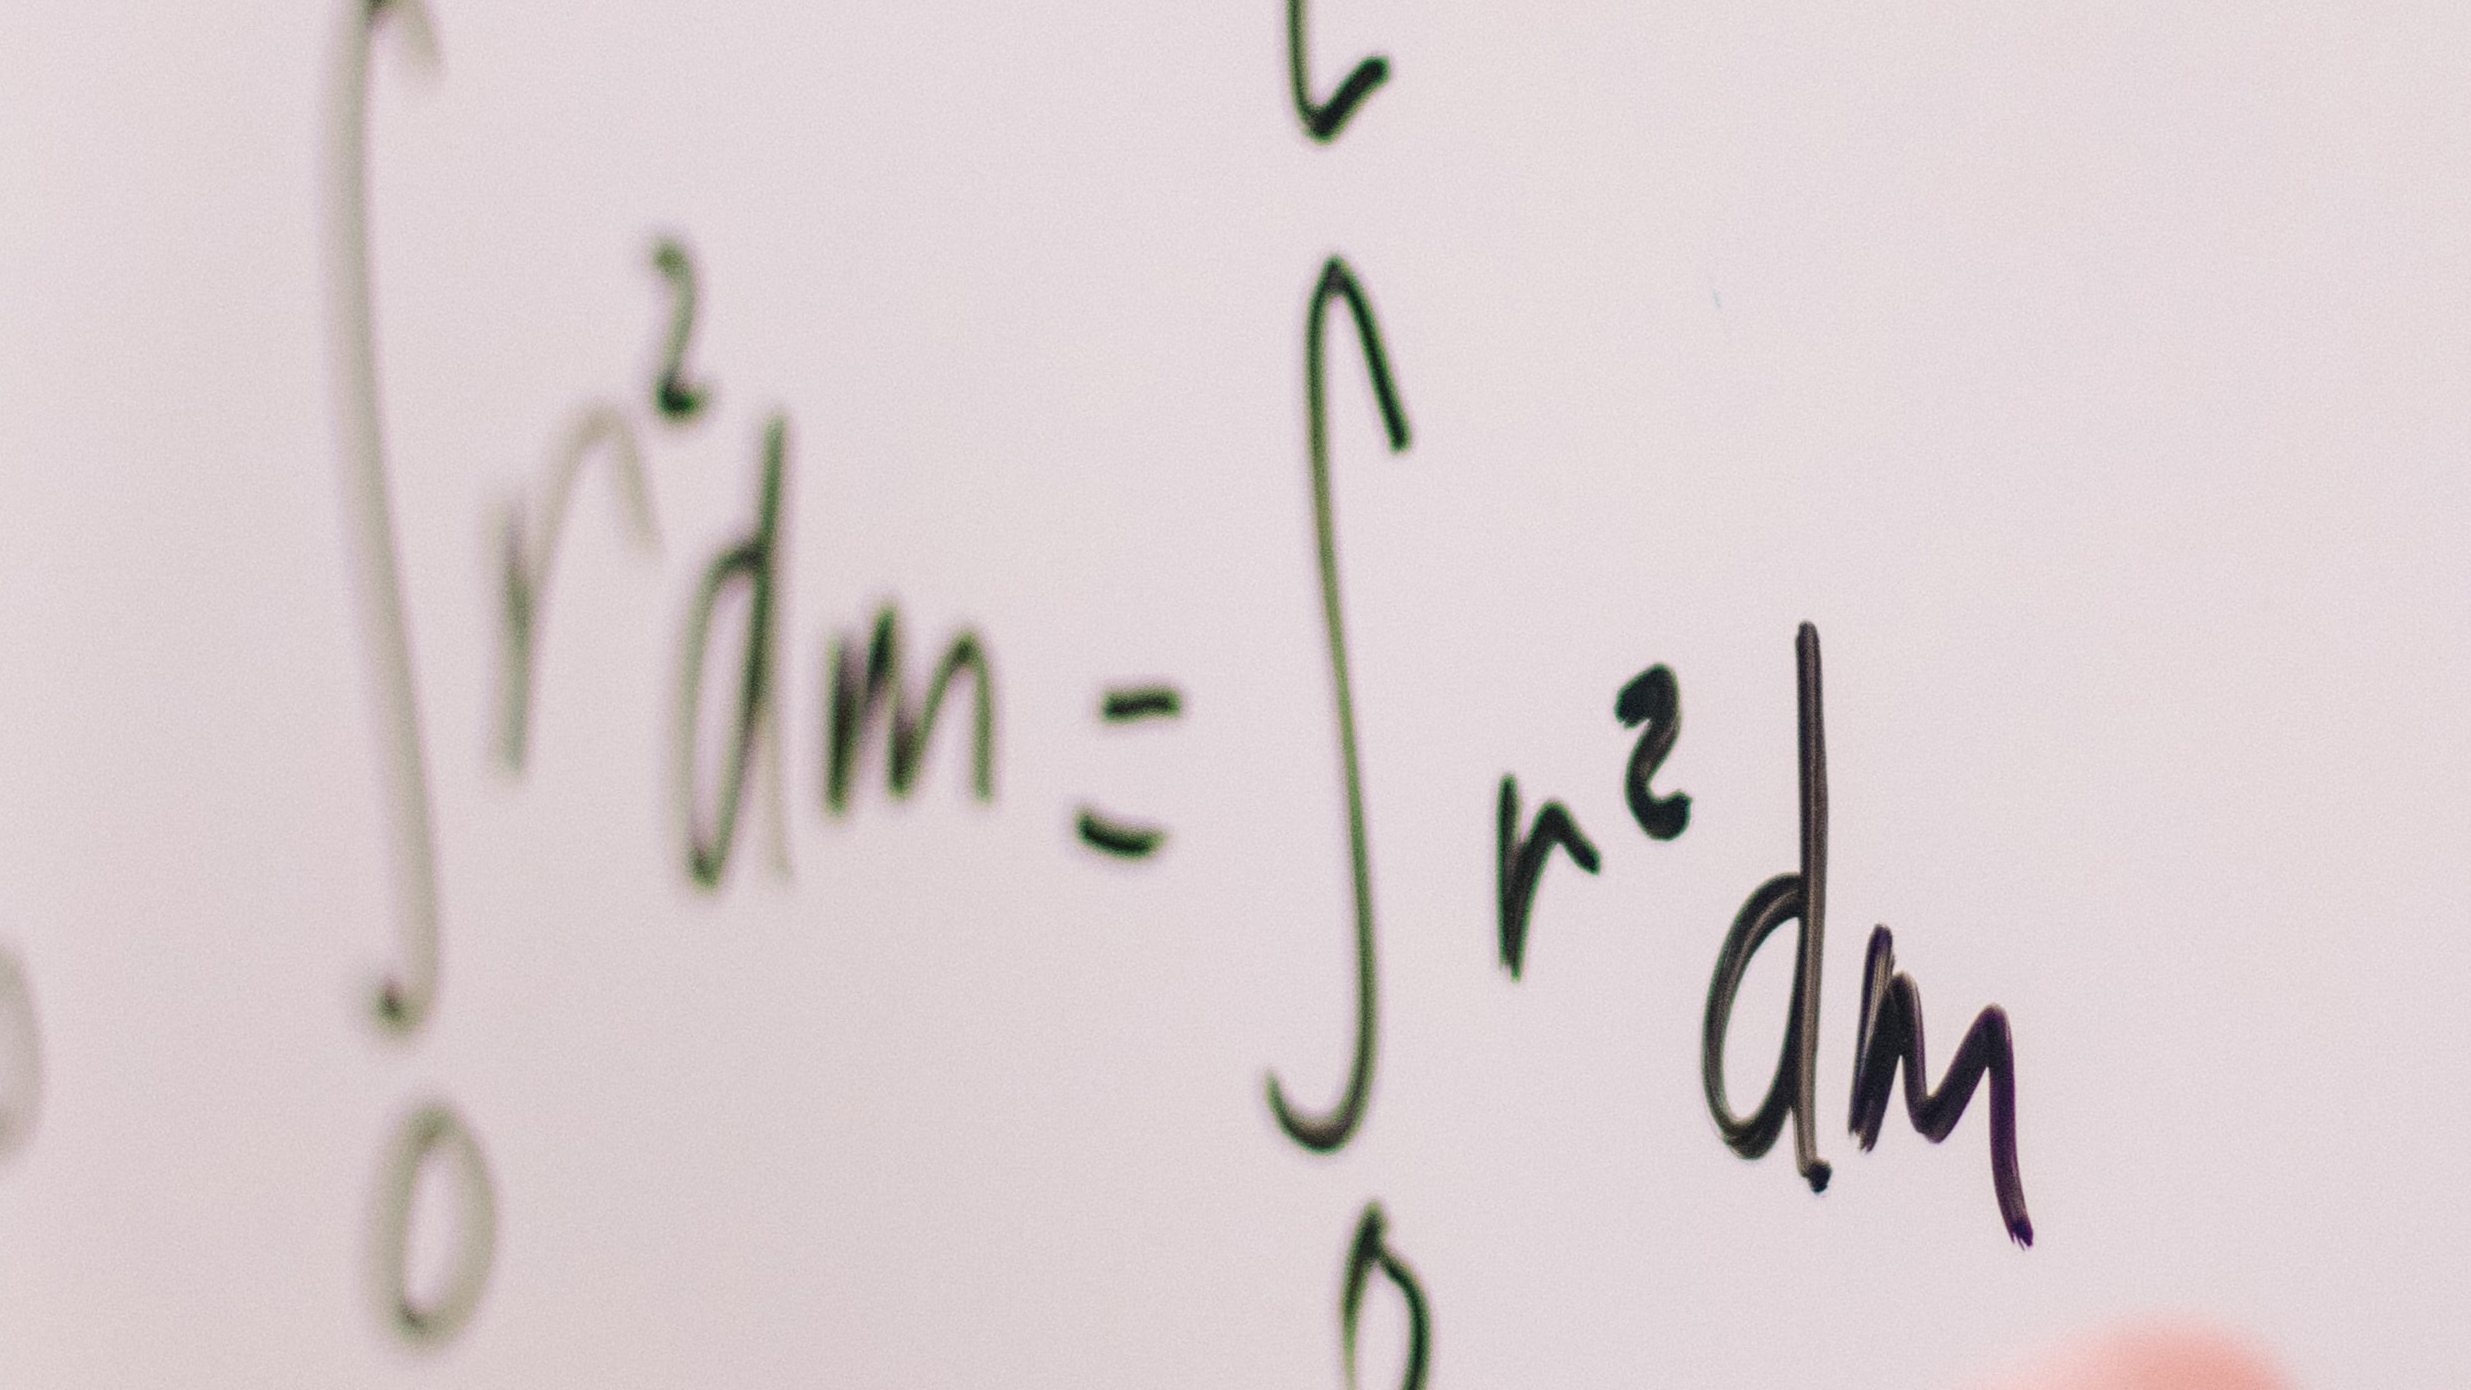 ∫₀ r² dm = ∫₀ᴸ r² dm